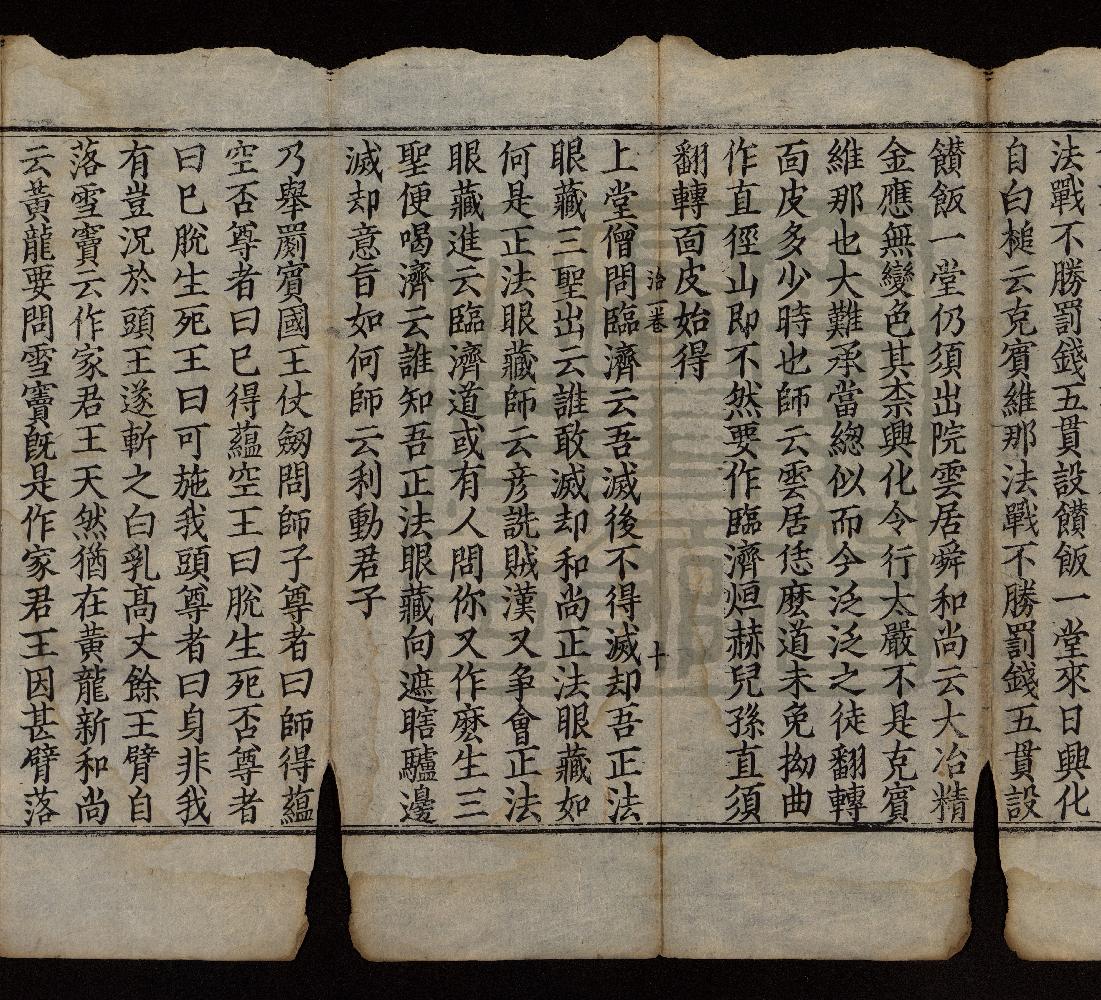 法戰不勝罰錢五貫設饡飯一堂來日興化
自白槌云克賓維那法戰不勝罰錢五貫設
饡飯一堂仍須出院雲居舜和尚云大冶精
金應無變色其柰興化令行太嚴不是克賓
維那也大難承當緫似而今泛泛之徒翻轉
面皮多少時也師云雲居恁麽道未免拗曲
作直徑山即不然要作臨濟烜赫兒孫直須
翻轉面皮始得
洽一卷 十
上堂僧問臨濟云吾滅後不得滅却吾正法
眼藏三聖出云誰敢滅却和尚正法眼藏如
何是正法眼藏師云彦詵賊漢又争會正法
眼藏進云臨濟道或有人問你又作麽生三
聖便喝濟云誰知吾正法眼藏向遮瞎驢邊
滅却意旨如何師云利動君子
乃舉罽賓國王仗劒問師子尊者曰師得蘊
空否尊者曰已得蘊空王曰脫生死否尊者
曰已脫生死王曰可施我頭尊者曰身非我
有豈況於頭王遂斬之白乳高丈餘王臂自
落雪竇云作家君王天然猶在黃龍新和尚
云黃龍要問雪竇旣是作家君王因甚臂落